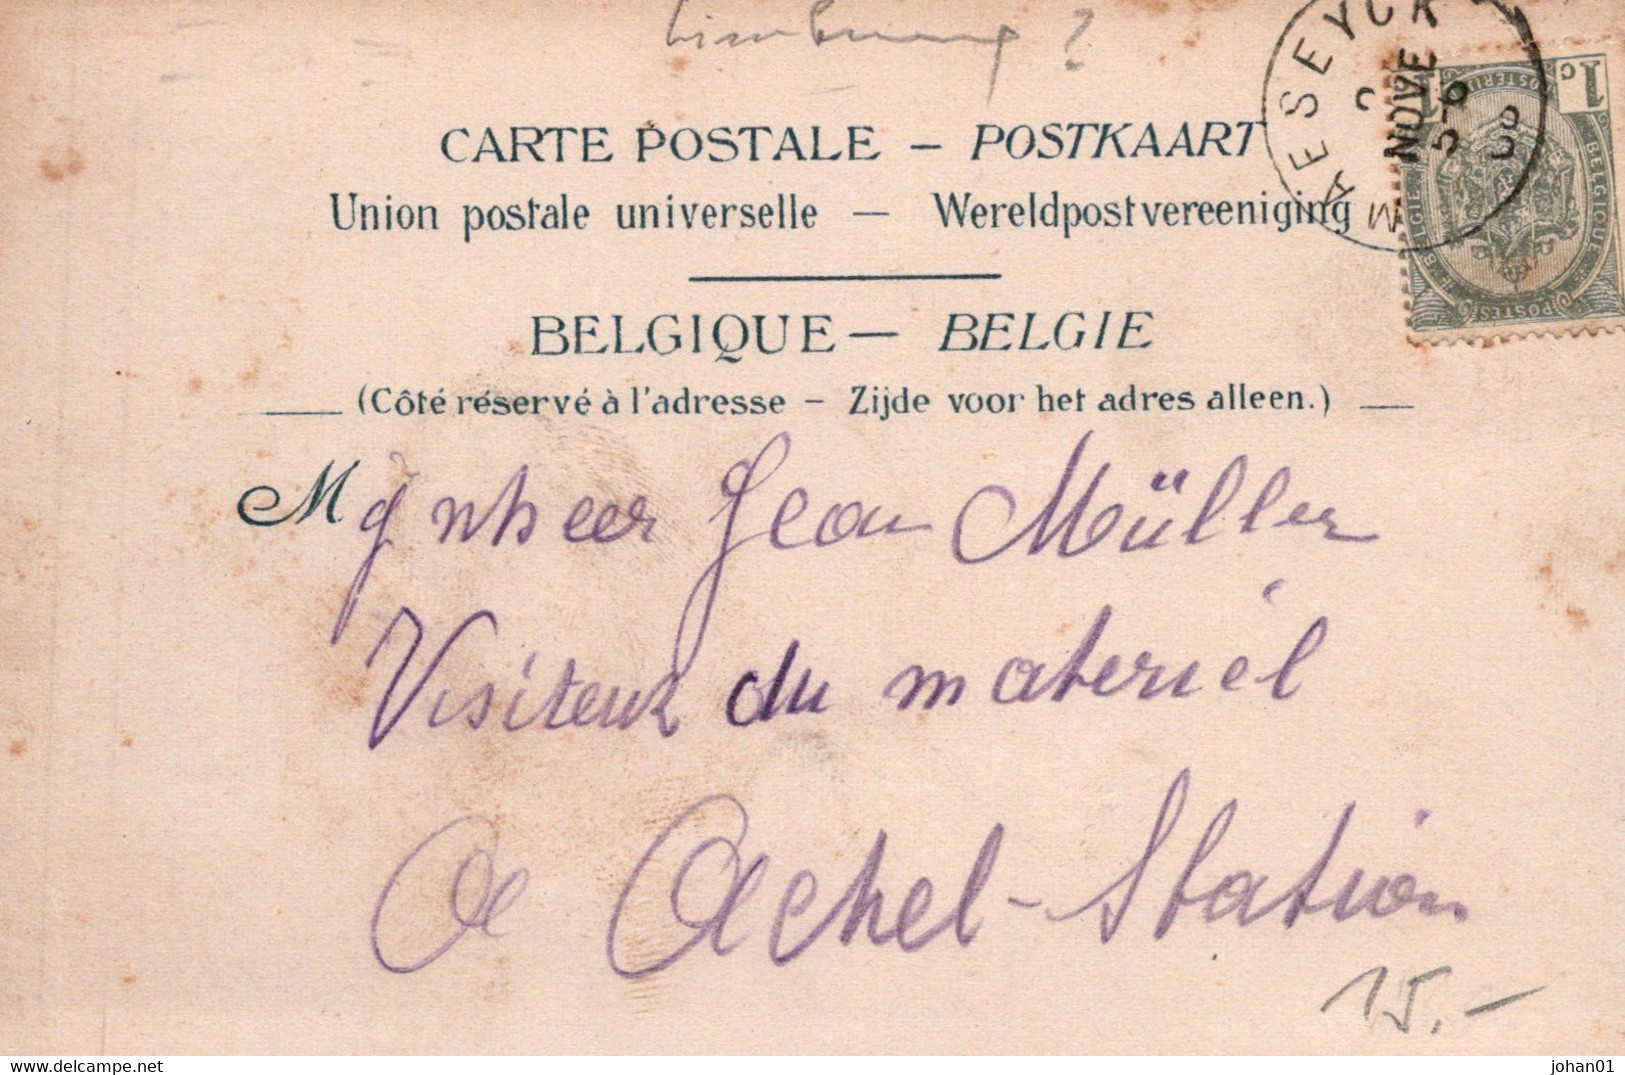 Limbourg ?
MAESEYCK
NOVE
5-6
1 c 1
BELGIË POSTES BELGIQUE
CARTE POSTALE — POSTKAART
Union postale universelle — Wereldpostvereeniging
BELGIQUE — BELGIE
(Côté réservé à l'adresse – Zijde voor het adres alleen.)
Mynheer Jean Müller
Visiteur du materiel
A Achel-Station
15.-
johan01